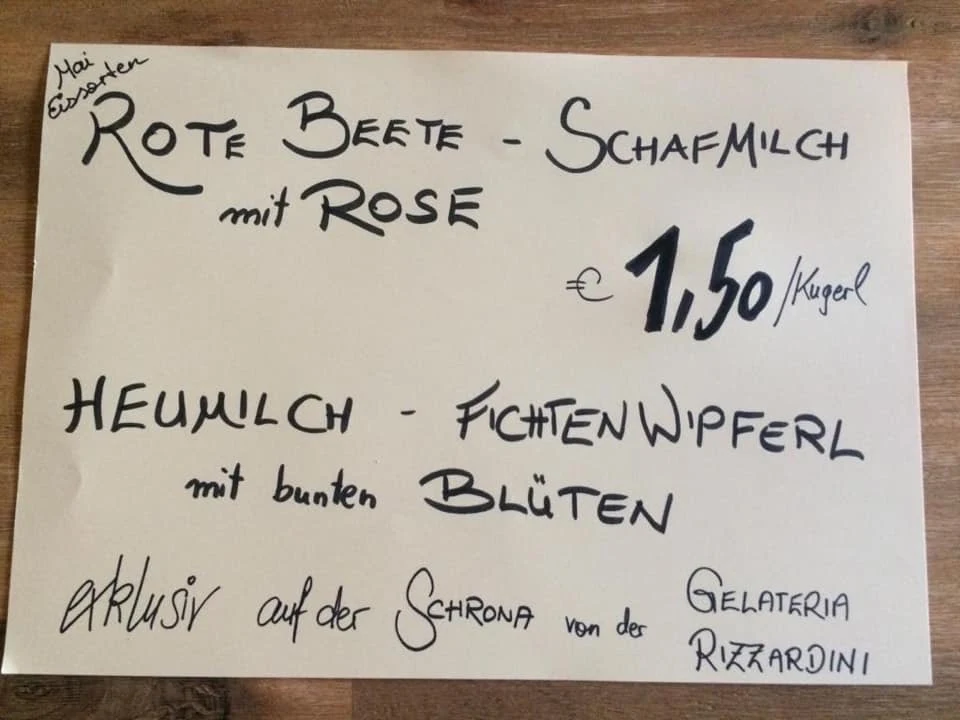 Mai
Eissorten
ROTE BEETE - SCHAFMILCH
mit ROSE
€ 1,50/Kugerl
HEUMILCH - FICHTENWIPFERL
mit bunten BLÜTEN
exklusiv auf der SCHRONA von der GELATERIA
RIZZARDINI